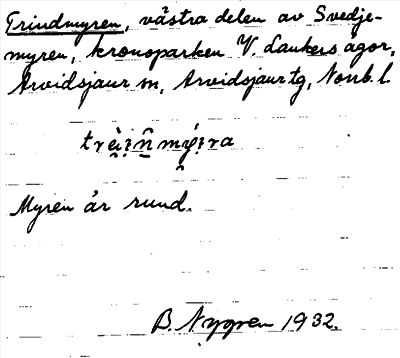 Trindmyren, västra delen av Svedje-
myren, kronoparken V. Lankers ägor,
Arvidsjaur sn, Arvidsjaur tg, Norrb. l.
Myren är rund.
B. Nygren 1932.